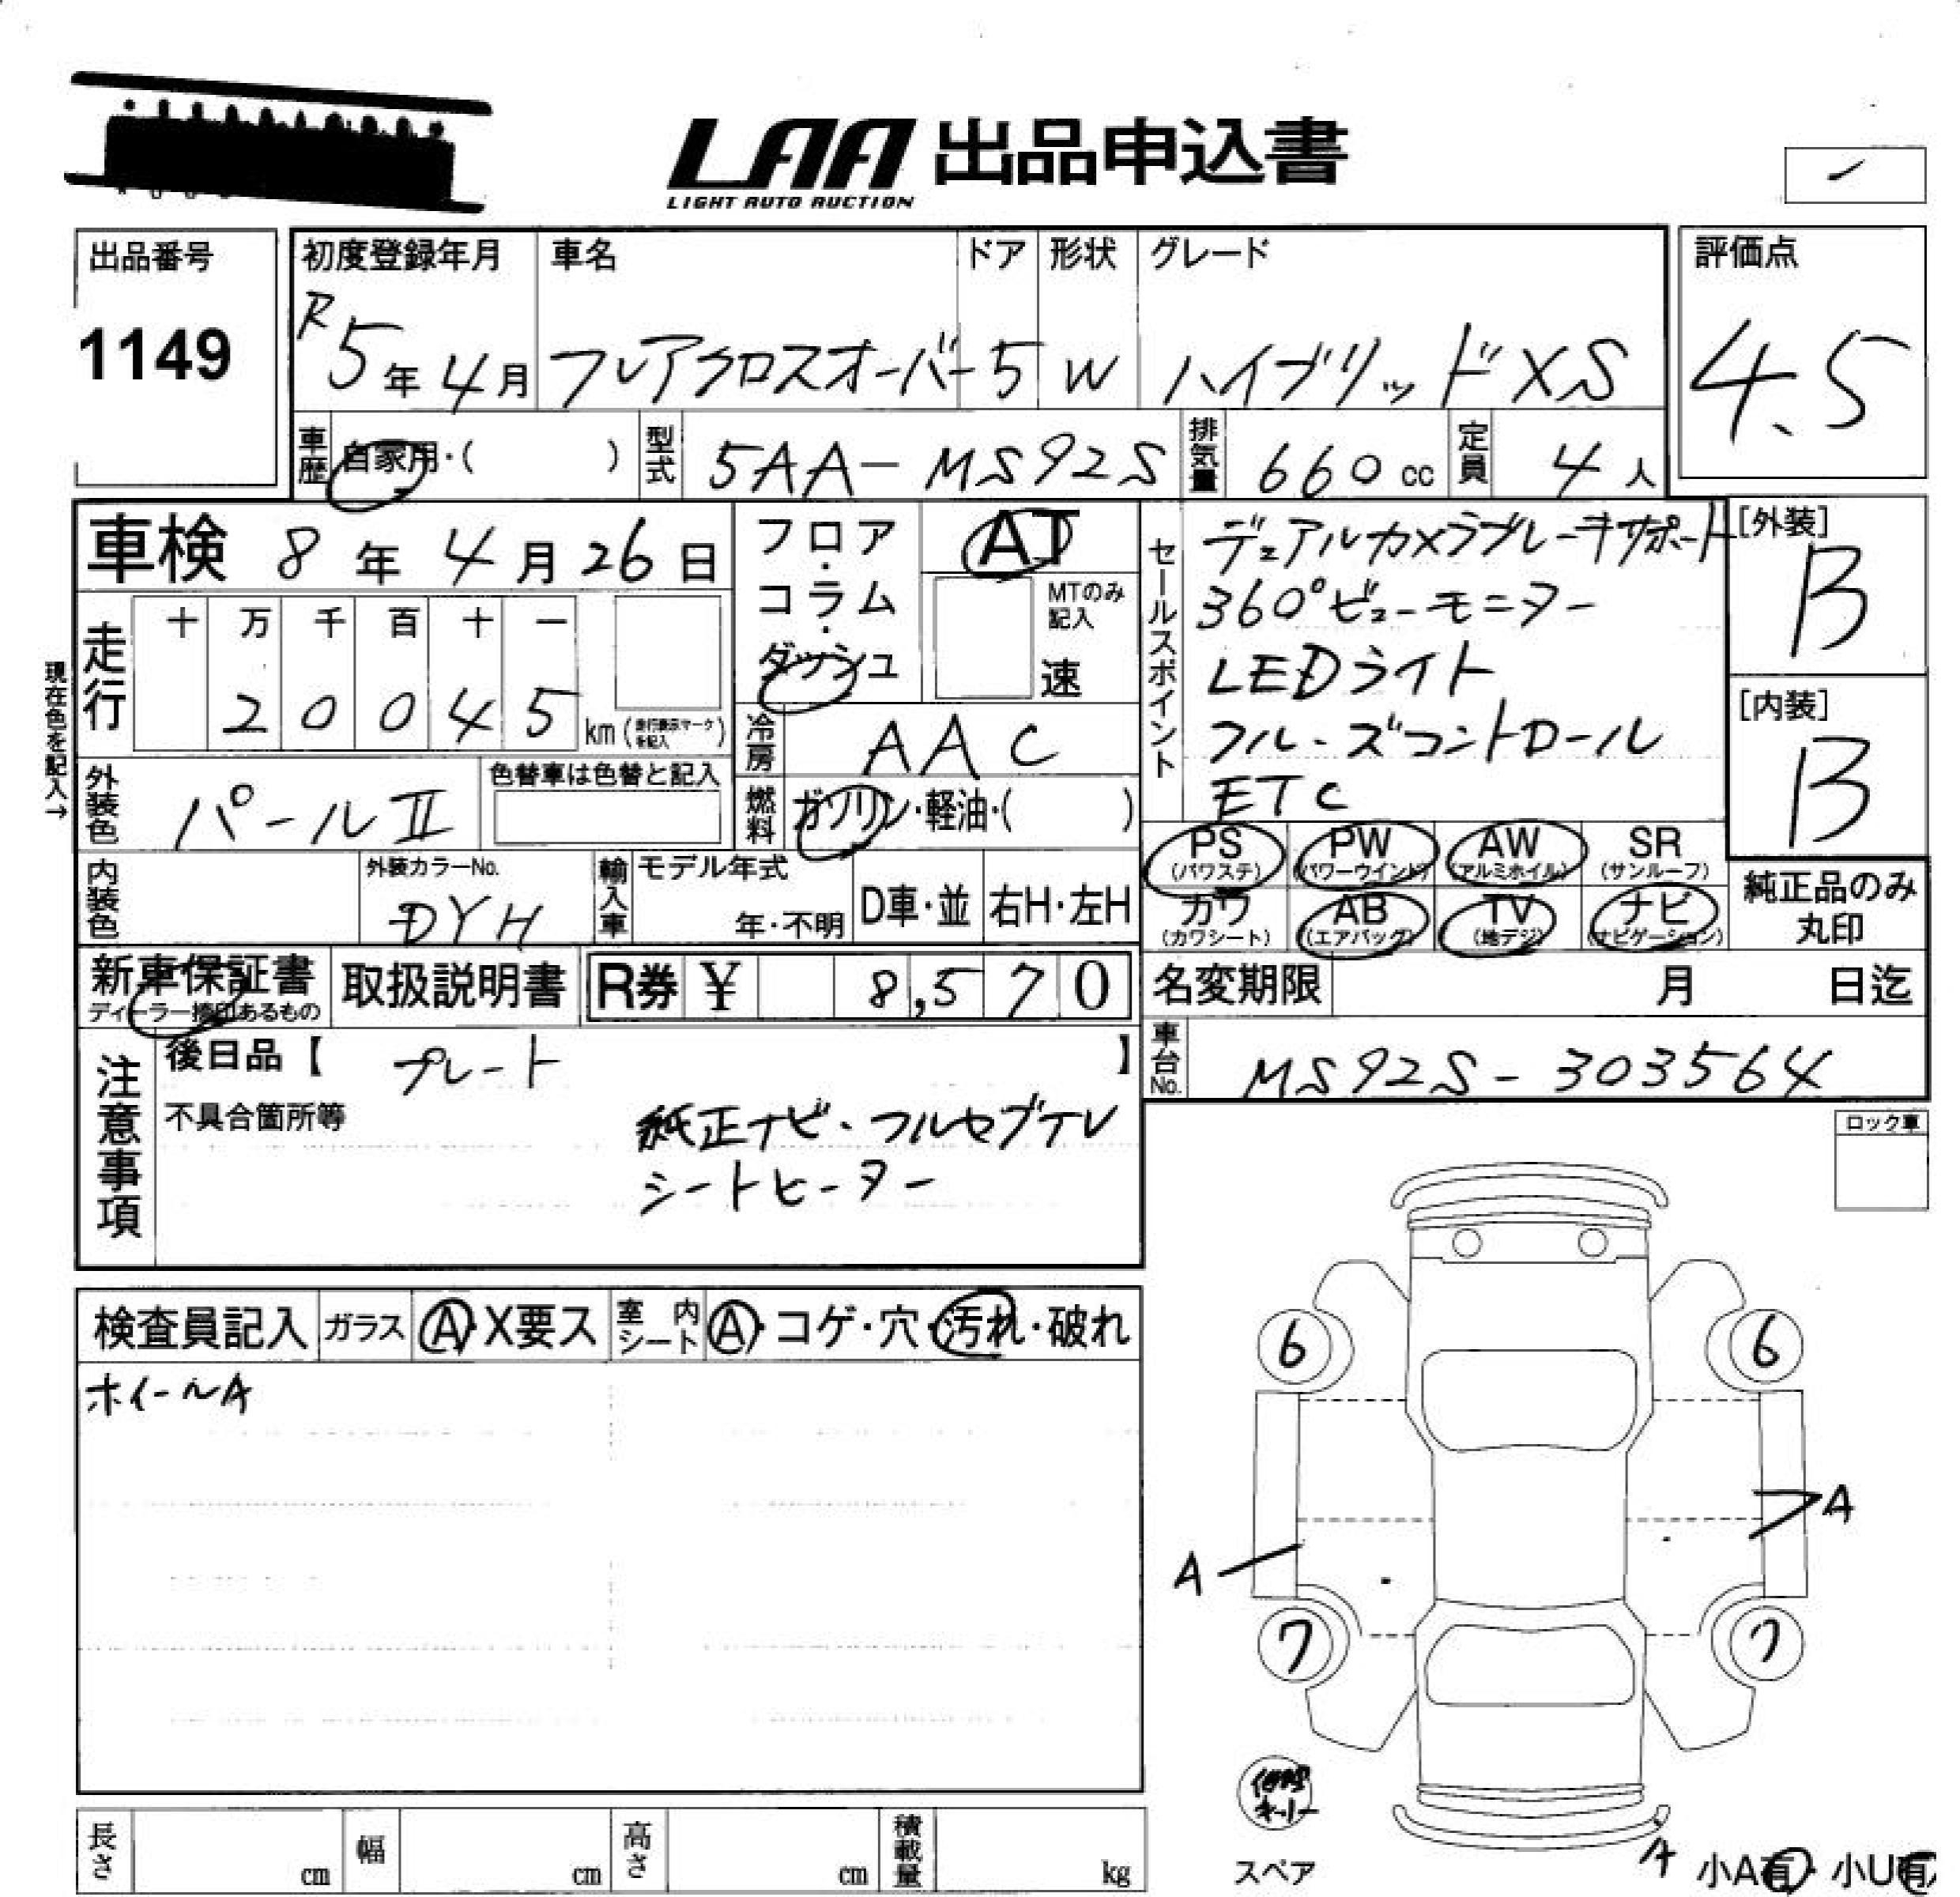 LAA 出品申込書
LIGHT AUTO AUCTION
出品番号
1149
初度登録年月
R5年4月
車名
フレアクロスオーバー
ドア
5
形状
W
グレード
ハイブリッドXS
評価点
4.5
車歴
自家用・( )
型式
5AA-MS92S
排気量
660cc
定員
4人
車検 8年4月26日
フロア・コラム・ダッシュ
AT
MTのみ記入
速
セールスポイント
デュアルカメラブレーキサポート
360°ビューモニター
LEDライト
クルーズコントロール
ETC
[外装]
B
[内装]
B
現在色を記入→
走行
十 万 千 百 十 一
2 0 0 4 5
km(走行表示マークを記入)
冷房
AAC
外装色
パールⅡ
色替車は色替と記入
燃料
ガソリン・軽油・( )
PS
(パワステ)
PW
(パワーウインド)
AW
(アルミホイル)
SR
(サンルーフ)
カワ
(カワシート)
AB
(エアバッグ)
TV
(地デジ)
ナビ
(ナビゲーション)
純正品のみ
丸印
内装色
外装カラーNo.
DYH
輸入車
モデル年式
年・不明
D車・並
右H・左H
新車保証書
ディーラー捺印あるもの
取扱説明書
R券 ¥ 8,570
名変期限 月 日迄
車台No.
MS92S-303564
注意事項
後日品【 プレート 】
不具合箇所等
純正ナビ・フルセグTV
シートヒーター
ロック車
検査員記入
ガラス
A・X要ス
室内シート
A・コゲ・穴・汚れ・破れ
ホイールA
6
6
A
A
7
7
スペア
A
小A有・小U有
長さ cm
幅 cm
高さ cm
積載量 kg